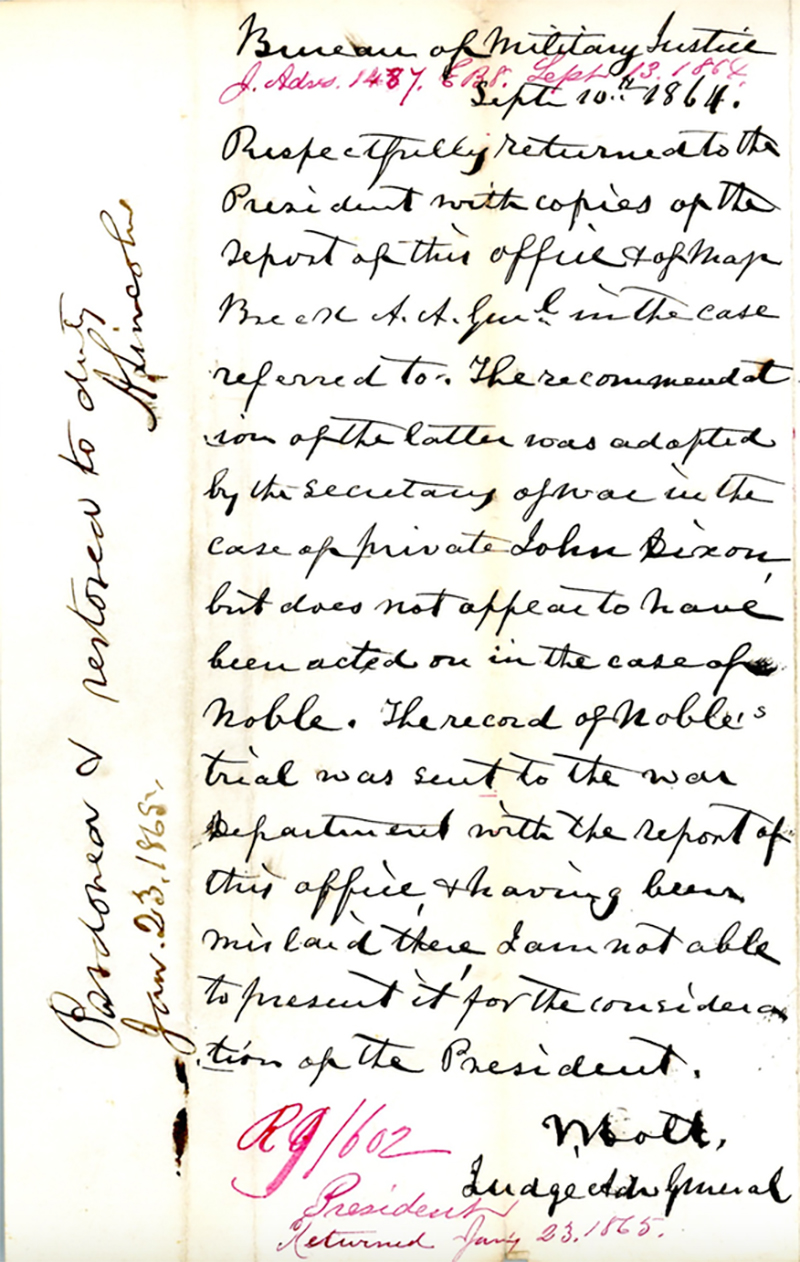 Bureau of Military Justice
J. Advs. 1487. E.B. 8. Sept 13. 1864
Sept. 10.th 1864.
Respectfully returned to the
President with copies of the
report of this office & of Maj
Breck A. A. Genl. in the case
referred to. The recommendat
ion of the latter was adopted
by the Secretary of war in the
case of private John Dixon,
but does not appear to have
been acted on in the case of
Noble. The record of Noble's
trial was sent to the war
Department with the report of
this office, & having been
mislaid there, I am not able
to present it for the considera
tion of the President.
J. Holt,
Judge Adv General
R 9/602
President
Returned Jany 23. 1865.
Pardoned & restored to duty
A. Lincoln
Jan. 23. 1865.